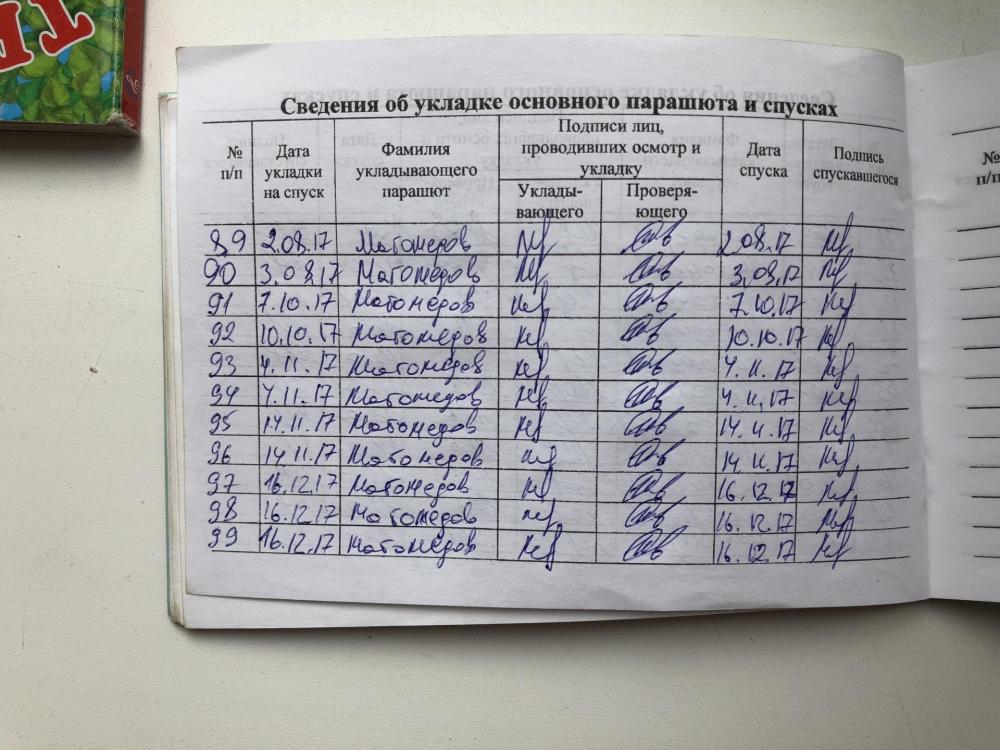 Сведения об укладке основного парашюта и спусках
№ п/п Дата укладки на спуск Фамилия укладывающего парашют Подписи лиц, проводивших осмотр и укладку Дата спуска Подпись спускавшегося
Уклады-вающего Проверя-ющего
89 2.08.17 Магомедов 2.08.17
90 3.08.17 Магомедов 3.08.17
91 7.10.17 Магомедов 7.10.17
92 10.10.17 Магомедов 10.10.17
93 4.11.17 Магомедов 4.11.17
94 4.11.17 Магомедов 4.11.17
95 14.11.17 Магомедов 14.11.17
96 14.11.17 Магомедов 14.11.17
97 16.12.17 Магомедов 16.12.17
98 16.12.17 Магомедов 16.12.17
99 16.12.17 Магомедов 16.12.17
№ п/п